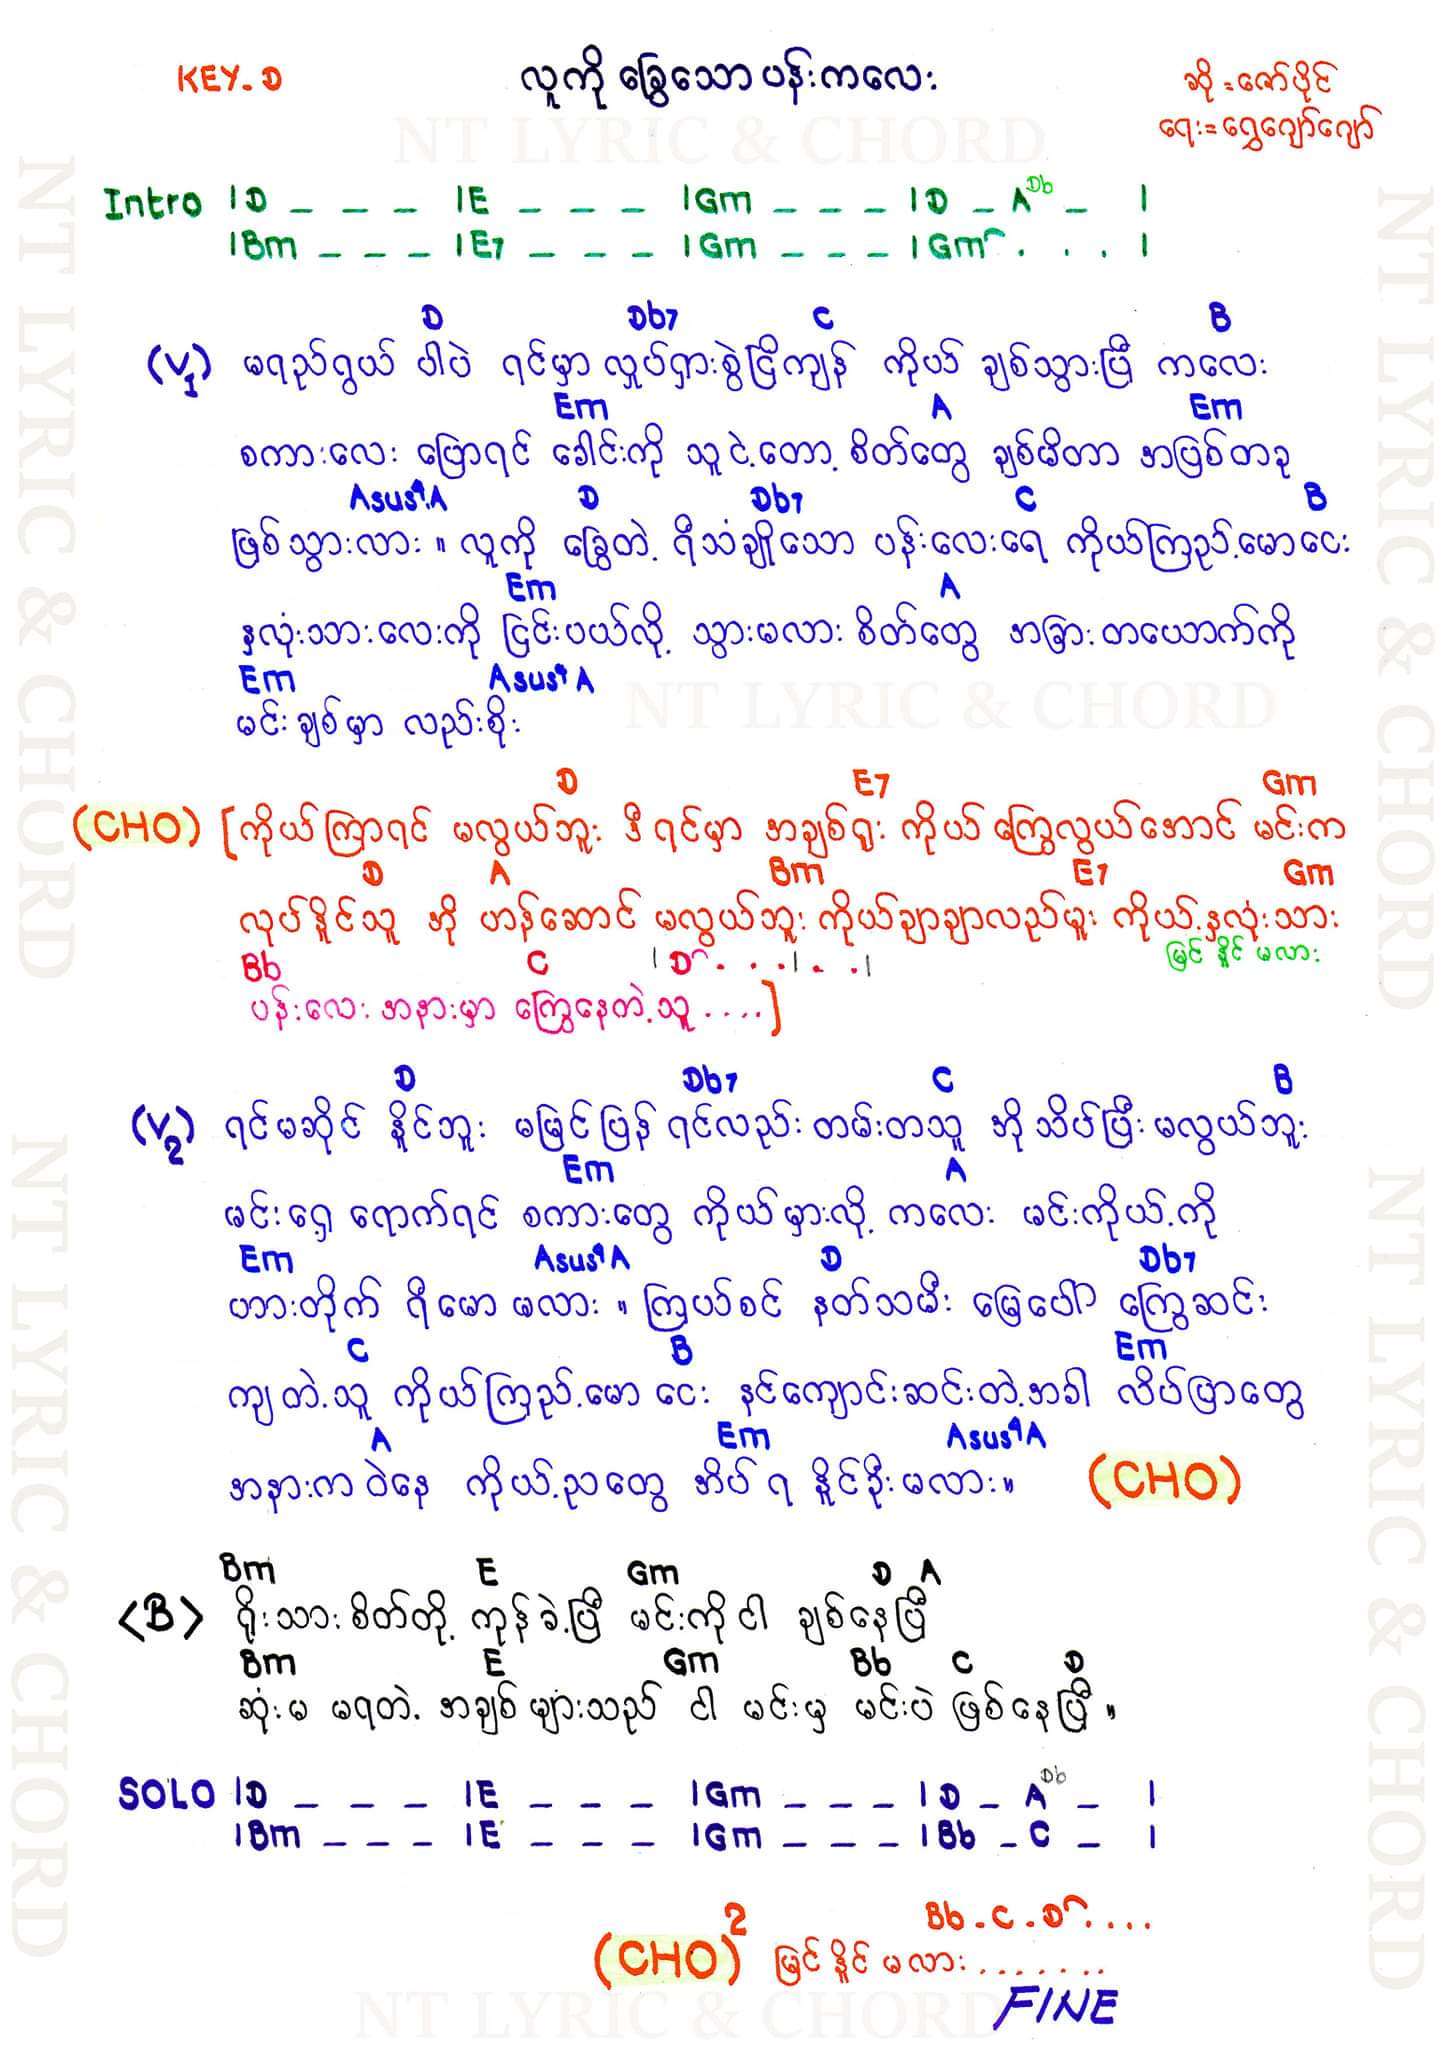 KEY. D
လူကို ခြွေသော ပန်းကလေး
ဆို = ဇော်ပိုင်
ရေး = ရွှေဂျော်ဂျော်
NT LYRIC & CHORD
Intro | D _ _ _ | E _ _ _ | Gm _ _ _ | D _ A Db _ |
| Bm _ _ _ | E7 _ _ _ | Gm _ _ _ | Gm . . . |
D Db7 C B
(V1) မရည်ရွယ် ပါပဲ ရင်မှာ လှုပ်ရှားစွဲငြိကျန် ကိုယ် ချစ်သွားပြီ ကလေး
Em A Em
စကားလေး ပြောရင် ခေါင်းကို သူငဲ့တော့ စိတ်တွေ ချစ်မိတာ အဖြစ်တခု
Asus4 A D Db7 C B
ဖြစ်သွားလား ။ လူကို ခြွေတဲ့ ရီသံချိုသော ပန်းလေးရေ ကိုယ်ကြည့်မောငေး
Em A
နှလုံးသားလေးကို ငြင်းပယ်လို့ သွားမလား စိတ်တွေ အခြားတယောက်ကို
Em Asus4 A
မင်းချစ်မှာ လည်းစိုး
NT LYRIC & CHORD
D E7 Gm
(CHO) [ ကိုယ်ကြာရင် မလွယ်ဘူး ဒီရင်မှာ အချစ်ရူး ကိုယ် ကြွေလွယ်အောင် မင်းက
D A Bm E7 Gm
လုပ်နိုင်သူ အို ဟန်ဆောင် မလွယ်ဘူး ကိုယ်ချာချာလည်မူး ကိုယ့်နှလုံးသား
မြင်နိုင်မလား
Bb C | D . . . | . . |
ပန်းလေးအနားမှာ ကြွေနေတဲ့သူ .... ]
D Db7 C B
(V2) ရင်မဆိုင် နိုင်ဘူး မမြင်ပြန် ရင်လည်းတမ်းတသူ အိုသိပ်ပြီးမလွယ်ဘူး
Em A
မင်းရှေ့ ရောက်ရင် စကားတွေ ကိုယ်မှားလို့ ကလေး မင်းကိုယ့်ကို
Em Asus4 A D Db7
ဟားတိုက် ရီမော မလား ။ ကြယ်စင် နတ်သမီး မြေပေါ် ကြွေဆင်း
C B Em
ကျတဲ့သူ ကိုယ်ကြည့်မော ငေး နင်ကျောင်းဆင်းတဲ့အခါ လိပ်ပြာတွေ
A Em Asus4 A
အနားက ဝဲနေ ကိုယ့်ညတွေ အိပ်ရ နိုင်ဦးမလား။ (CHO)
Bm E Gm D A
<B> ရိုးသားစိတ်တို့ ကုန်ခဲ့ပြီ မင်းကိုငါ ချစ်နေပြီ
Bm E Gm Bb C D
ဆုံးမ မရတဲ့ အချစ်များသည် ငါ မင်းမှ မင်းပဲ ဖြစ်နေပြီ ။
SOLO | D _ _ _ | E _ _ _ | Gm _ _ _ | D _ A Db _ |
| Bm _ _ _ | E _ _ _ | Gm _ _ _ | Bb _ C _ |
Bb . C . D . . . .
(CHO)2 မြင်နိုင်မလား .......
FINE
NT LYRIC & CHORD
NT LYRIC & CHORD
NT LYRIC & CHORD
NT LYRIC & CHORD
NT LYRIC & CHORD